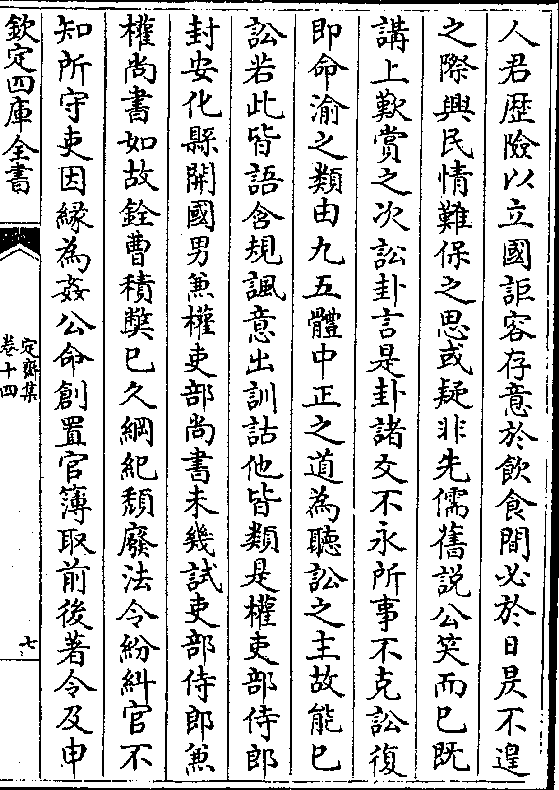 人君歴險以立國詎容存意於飲食間必於日昃不遑
之際興民情難保之思或疑非先儒舊説公笑而已既
講上歎賞之次訟卦言是卦諸爻不永所事不克訟復
即命渝之類由九五體中正之道為聽訟之主故能已
訟若此皆語含規諷意出訓詁他皆類是權吏部侍郎
封安化縣開國男兼權吏部尚書未幾試吏部侍郎兼
權尚書如故銓曹積弊已久綱紀頽廢法令紛糾官不
知所守吏因縁為姦公命創置官簿取前後著令及申
欽定四庫全書
定齋集
卷十四
七